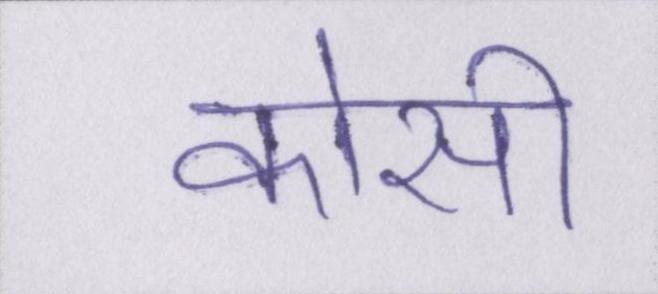 कोसी